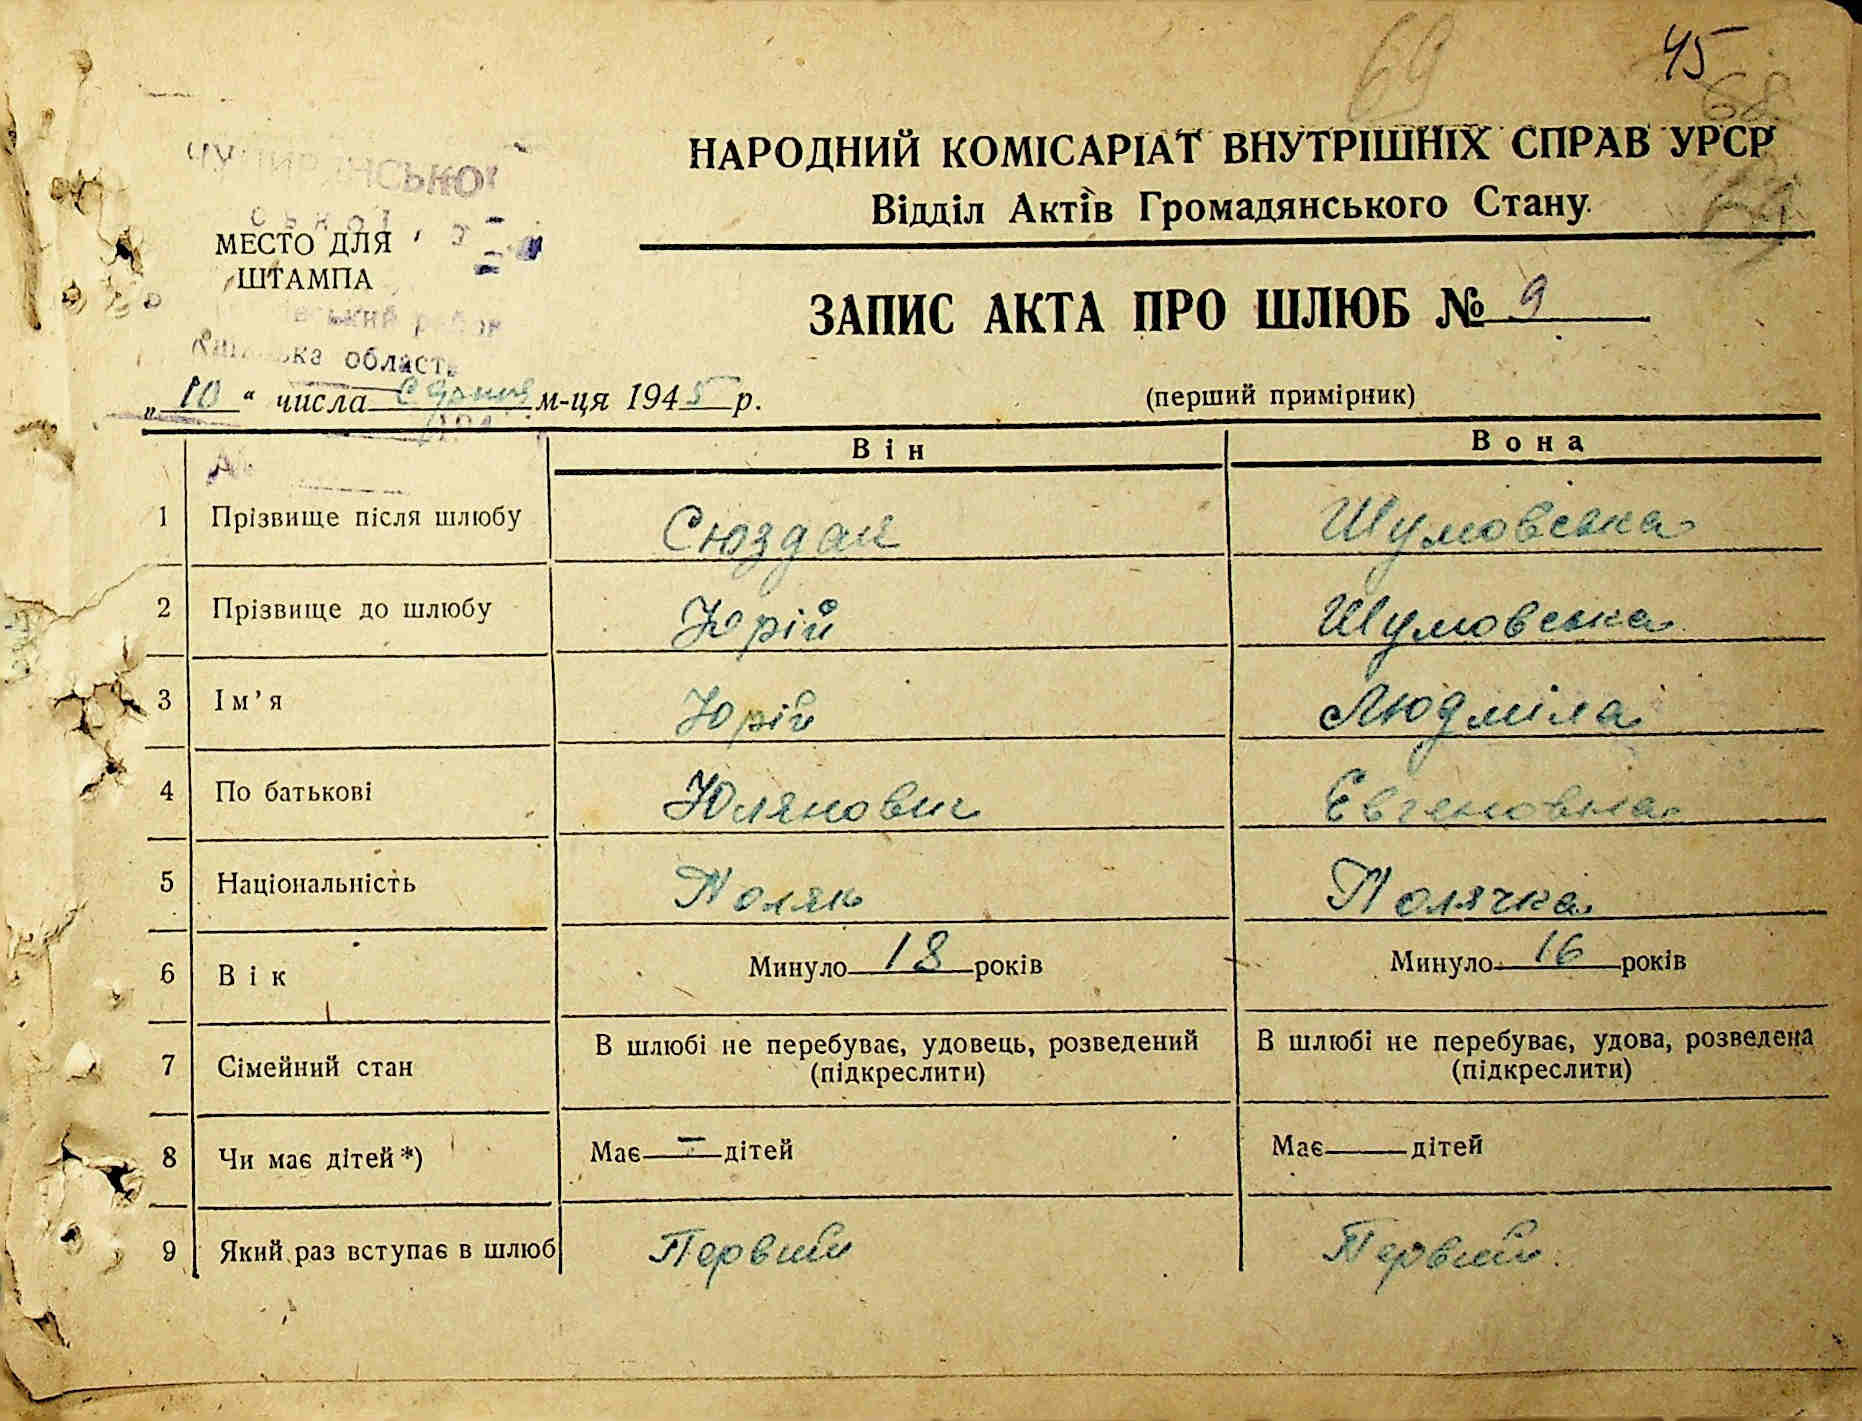 69
45
68
НАРОДНИЙ КОМІСАРІАТ ВНУТРІШНІХ СПРАВ УРСР
Відділ Актів Громадянського Стану
69
МЕСТО ДЛЯ
ШТАМПА
область
ЗАПИС АКТА ПРО ШЛЮБ № 9
„10“ числа Серпня м-ця 1945 р.
(перший примірник)
Він Вона
1 Прізвище після шлюбу Сюздак Шумовська
2 Прізвище до шлюбу Юрій Шумовська
3 Ім'я Юрій Людміла
4 По батькові Юлянович Євгеновна
5 Національність Поляк Полячка
6 Вік Минуло 18 років Минуло 16 років
7 Сімейний стан В шлюбі не перебуває, удовець, розведений (підкреслити) В шлюбі не перебуває, удова, розведена (підкреслити)
8 Чи має дітей*) Має — дітей Має дітей
9 Який раз вступає в шлюб Первий Первий